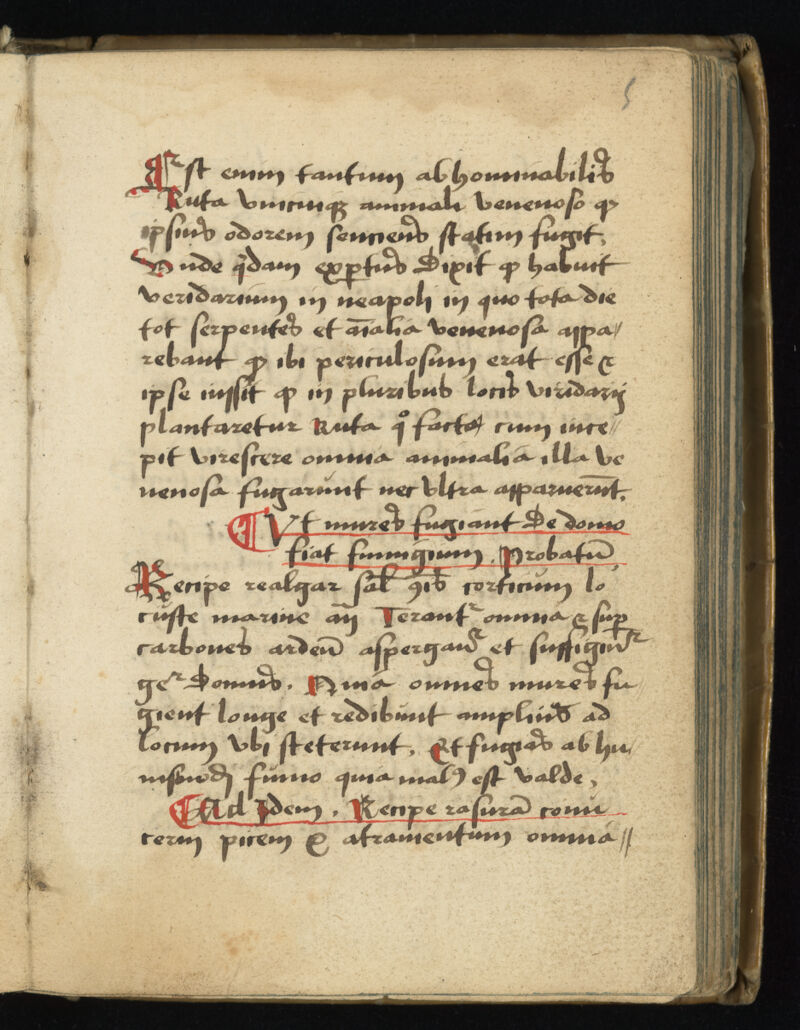 5
Est enim tantum abhominabilis
Ruta vnicuiqꝫ animali venenoso ꝙ
ipsius odorem senciens statim fugit.
Vnde qͥdam exꝑtus dixit ꝙ habuit
veridarium in neapoli in quo tota die
tot serpentes et aīalia venenosa appa//
rebant ꝙ ibi periculosum erat esse ⁊
ipse iussit ꝙ in pluribus locis viridarij
plantaretur Ruta qͦ facta cum ince//
pit virescere omnia animalia illa ve
nenosa fugarunt nec vltra apparuerūt.
¶ Vt mures fugiant de domo
fiat fumigium. Probatū
Recipe realgar sal ꝯis corticum lo
custe marine añ Terantᷣ omnia ⁊ suꝑ
carbones ardeñ aspergañᷣ et suffigiūᷣ
domus. Quia omnes mures fu
gient longe et redibunt amplius ad
locum vbi steterunt. Et fugias ab hu//
iusmodi fumo quia malꝰ est valde,
¶ Ad Idem. Recipe rasurā cornu
picem ⁊ atramentum omnia//